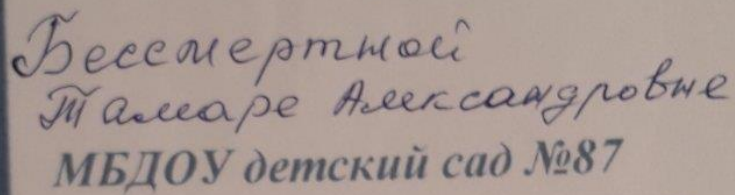 Бессмертной
Тамаре Александровне
МБДОУ детский сад №87